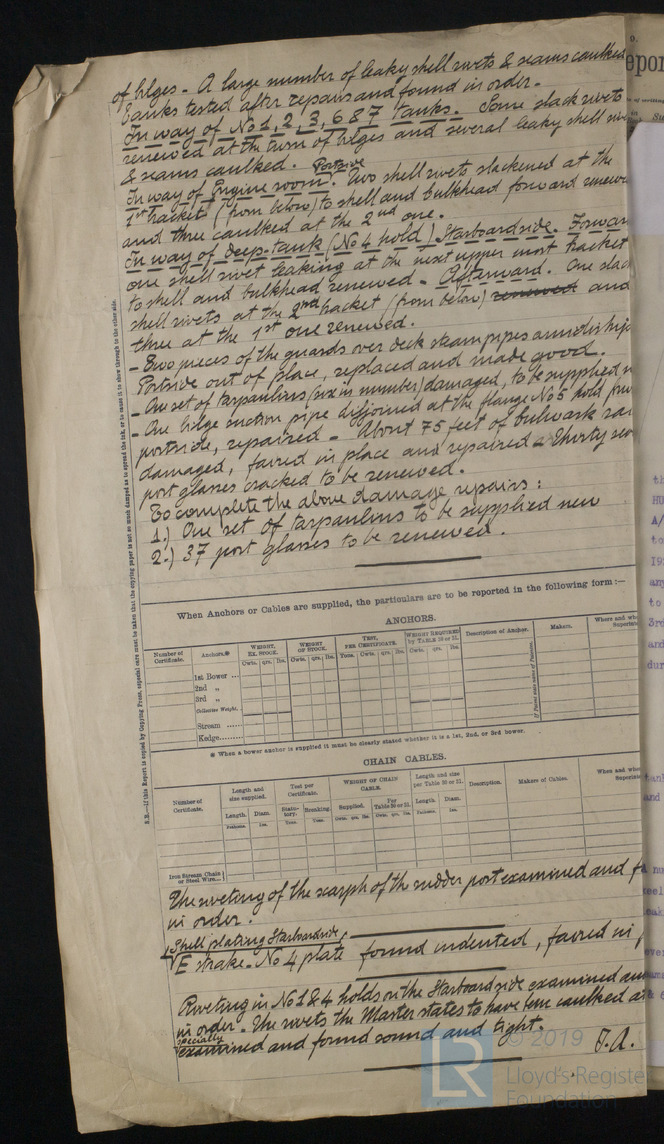 of bilges - A large number of leaky shell rivets & seams caulked
tanks tested after repairs and found in order -
In way of No 1, 2, 3, 6 & 7 tanks - Some slack rivets
renewed at the turn of bilges and several leaky shell
& seams caulked.
In way of Engine room. Portside Two shell rivets slackened at the
1st bracket (from below) to shell and bulkhead forward
and three caulked at the 2nd one.
In way of deep-tank (No 4 hold) Starboardside.
one shell rivet leaking at the next upper most bracket
to shell and bulkhead renewed - Afterward. One
shell rivets at the 2nd bracket (from below) renewed and
three at the 1st one renewed.
- Two pieces of the guards over deck steampipes amidships
Portside out of place, replaced and made good.
- One set of tarpaulins (six in number) damaged, to be supplied
- One bilge suction pipe disjoined at the flange No 5 hold
portside, repaired - About 75 feet of bulwark
damaged, faired in place and repaired - Thirty
port glasses cracked to be renewed.
To complete the above damage repairs:
1.) One set of tarpaulins to be supplied new
2.) 37 port glasses to be renewed.
When Anchors or Cables are supplied, the particulars are to be reported in the following form :—
ANCHORS.
Number of Certificate. Anchors.* WEIGHT, EX. STOCK. WEIGHT OF STOCK. TEST, PER CERTIFICATE. WEIGHT REQUIRED by TABLE 30 or 31. Description of Anchor. Makers.
Cwts. qrs. lbs. Cwts. qrs. lbs. Tons. Cwts. qrs. lbs. Cwts. qrs. lbs.
1st Bower
2nd „
3rd „
Collective Weight.
Stream
Kedge
* When a bower anchor is supplied it must be clearly stated whether it is a 1st, 2nd, or 3rd bower.
CHAIN CABLES.
Number of Certificate. Length and size supplied. Test per Certificate. WEIGHT OF CHAIN CABLE. Length and size per Table 30 or 31. Description. Makers of Cables.
Length. Diam. Statutory. Breaking. Supplied. Per Table 30 or 31. Length. Diam.
Iron Stream Chain or Steel Wire
The riveting of the scarph of the rudder post examined and
in order.
Shell plating Starboardside,
E strake - No 4 plate found indented, faired in
Riveting in No 1 & 4 holds on the Starboardside examined
in order - The rivets the Master states to have been caulked
specially
examined and found sound and tight.
J.A.
© 2019
LR
Lloyd's Register
Foundation